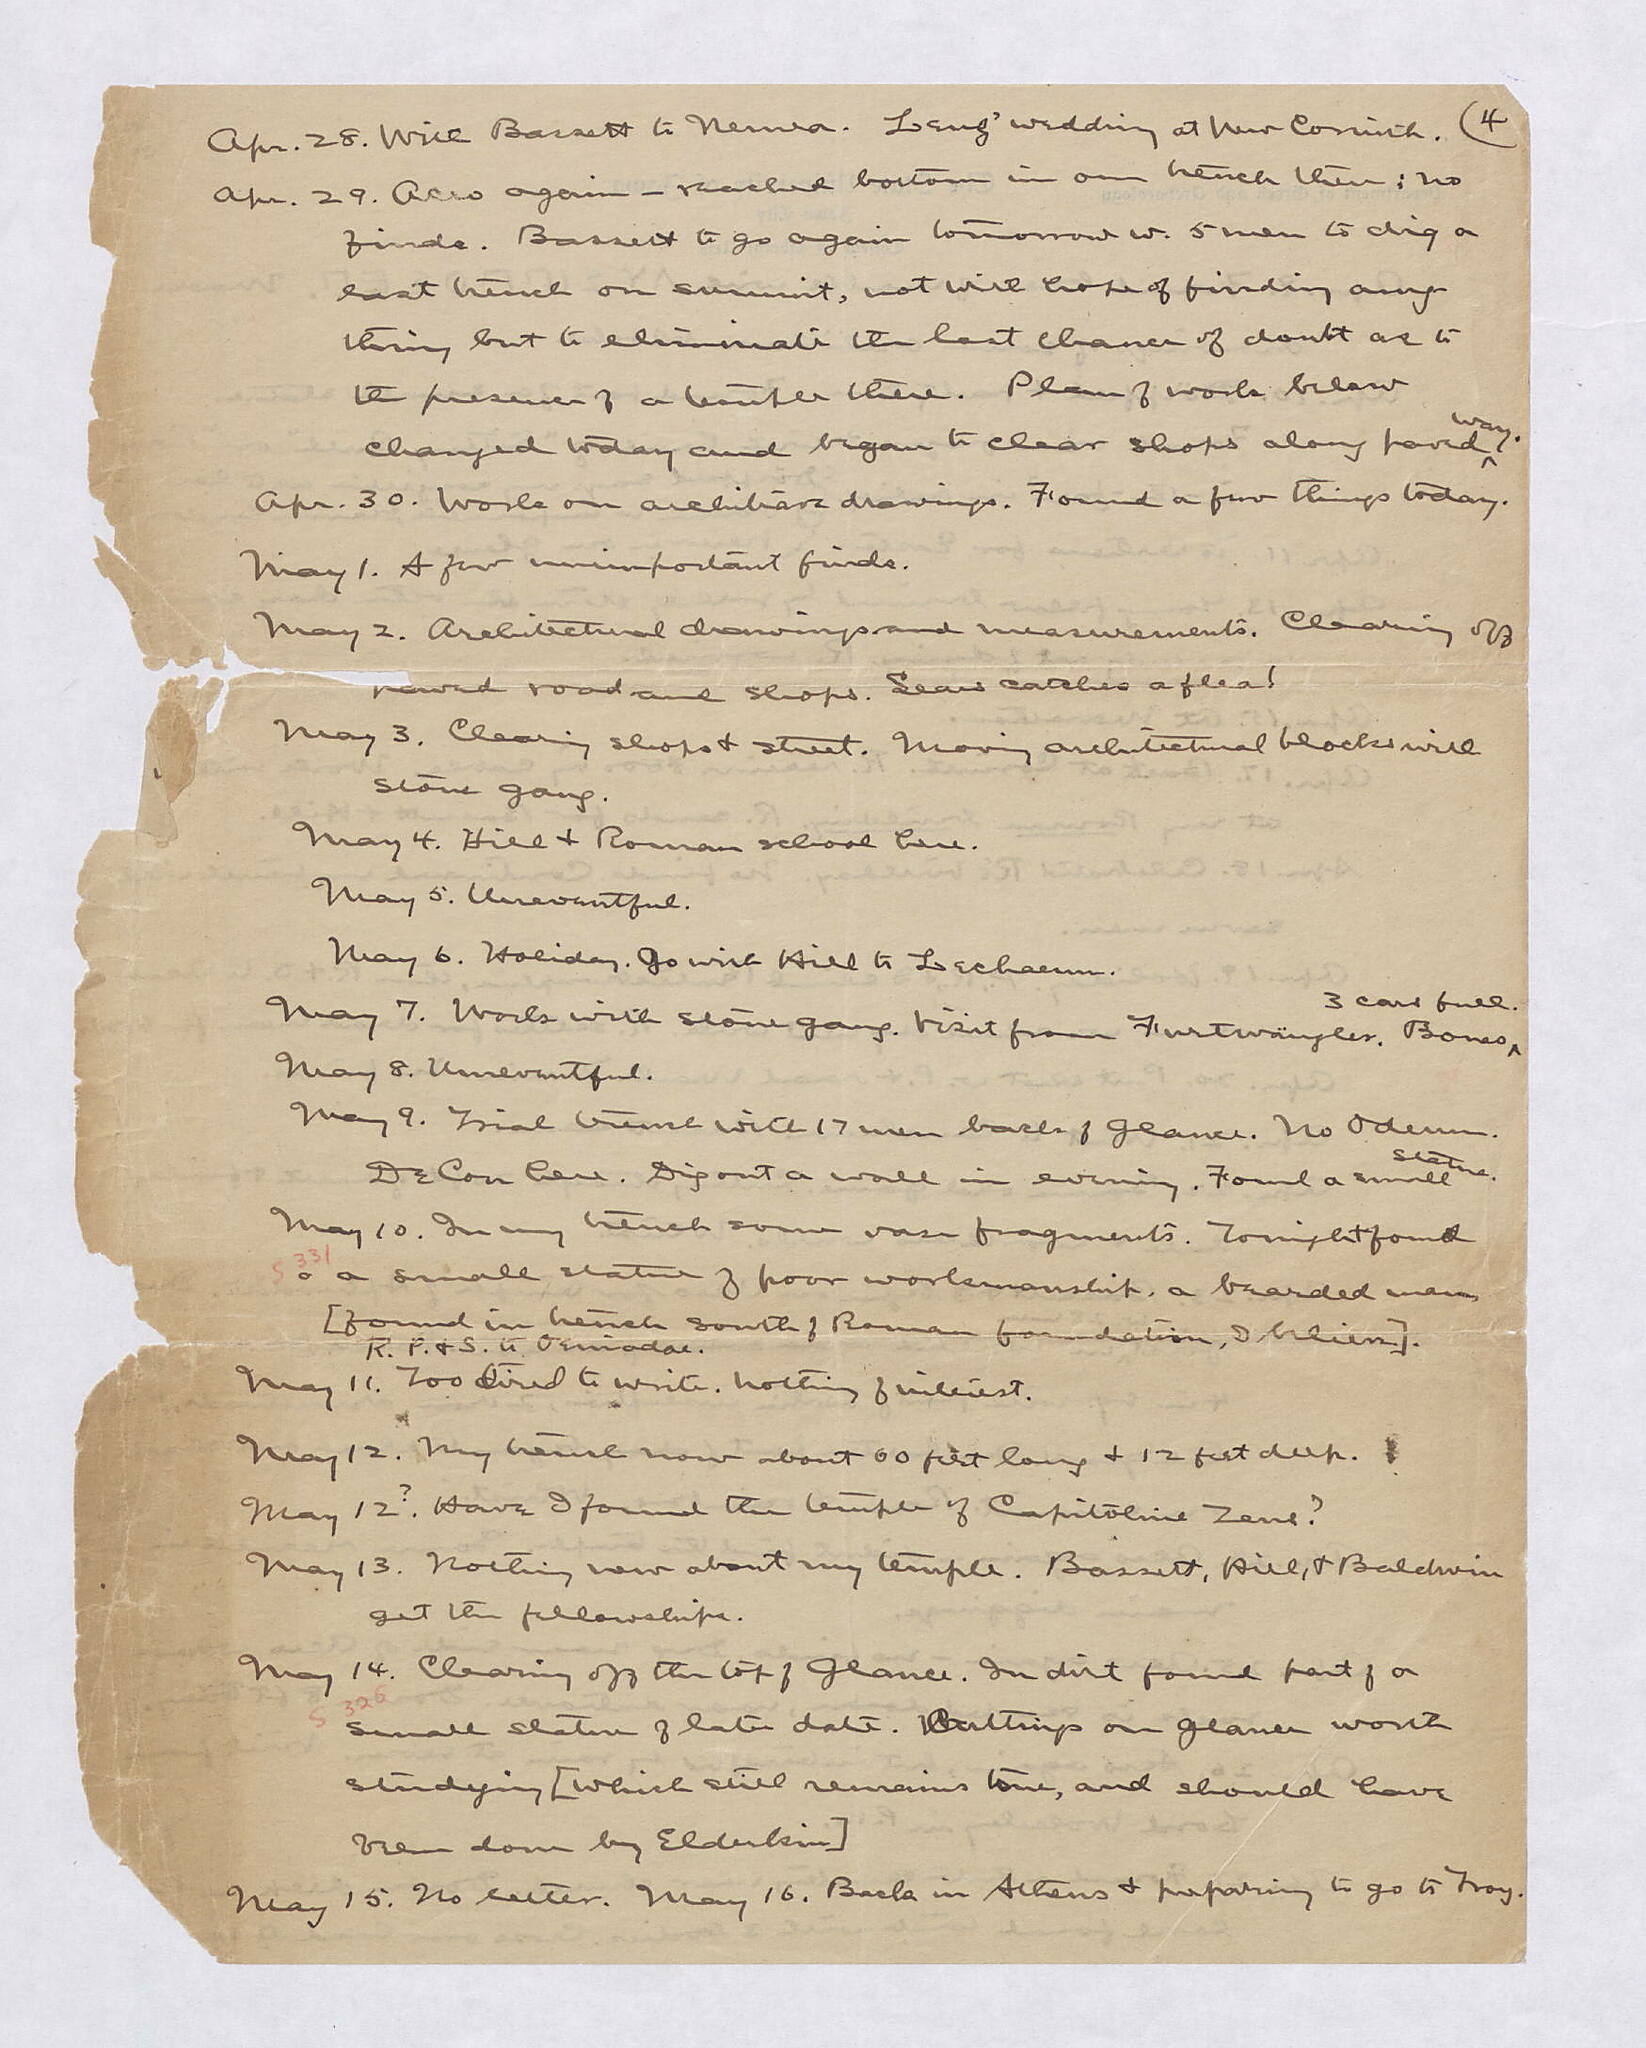 (4
Apr. 28. With Bassett to Nemea. Leng' wedding at New Corinth.
Apr. 29. Acro again – reached bottom in our trench there; no
finds. Bassett to go again tomorrow w. 5 men to dig a
last trench on summit, not with hope of finding any-
thing but to eliminate the last chance of doubt as to
the presence of a temple there. Plan of work below
changed today and began to clear shops along paved way.
Apr. 30. Work on architrave drawings. Found a few things today.
May 1. A few unimportant finds.
May 2. Architectural drawings and measurements. Clearing off
paved road and shops. Sears catches a flea!
May 3. Clearing shops & street. Moving architectural blocks with
stone gang.
May 4. Hill & Roman school here.
May 5. Uneventful.
May 6. Holiday. Go with Hill to Lechaeum.
May 7. Work with stone gang. Visit from Furtwängler. Bones 3 cars full.
May 8. Uneventful.
May 9. Trial trench with 17 men back of Glauce. No Odeum.
DeCou here. Dig out a wall in evening. Found a small statue.
May 10. In my trench some vase fragments. Tonight found
S 331
a small statue of poor workmanship. a bearded man
[found in trench south of Roman foundation, I believe].
R. P. & S. to Oeniadae.
May 11. Too tired to write. Nothing of interest.
May 12. My trench now about 60 feet long & 12 feet deep.
May 12?. Have I found the temple of Capitoline Zeus?
May 13. Nothing new about my temple. Bassett, Hill, & Baldwin
get the fellowships.
May 14. Clearing off the top of Glauce. In dirt found part of a
S 326
small statue of late date. Cuttings on Glauce worth
studying [which still remains true, and should have
been done by Elderkin]
May 15. No letter. May 16. Back in Athens & preparing to go to Troy.